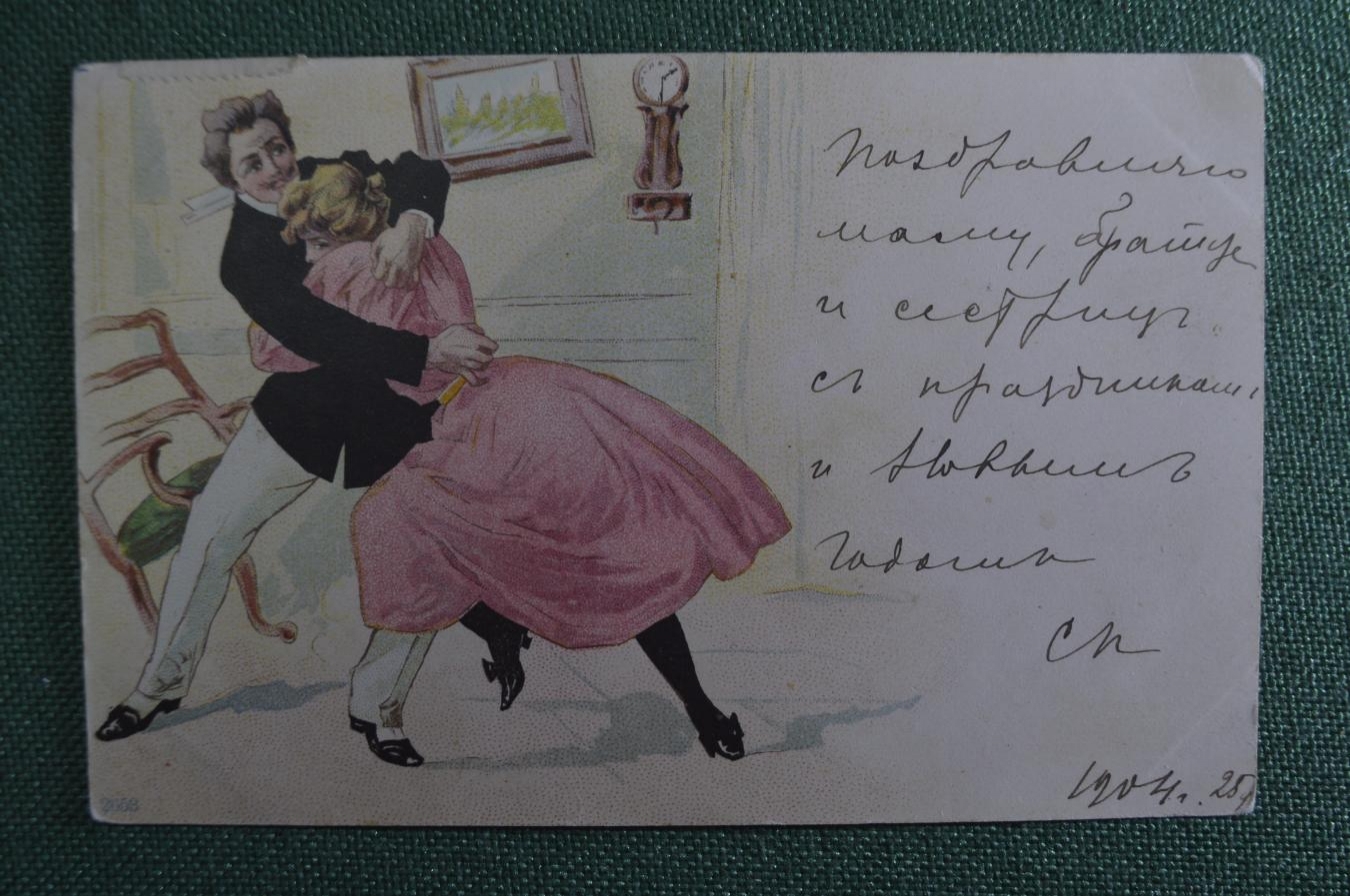 Поздравляю
маму, братце
и сестрицу
съ праздниками
и Новымъ
годомъ
СП
1904 г. 25
2608